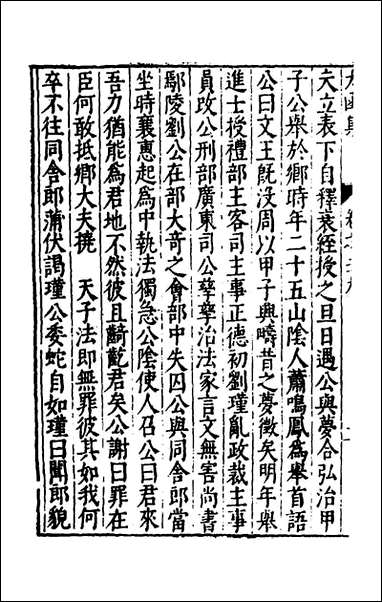 天立表下自釋衰絰授之旦日遇公與夢合弘治甲
子公舉於鄉時年二十五山陰人蕭鳴鳳爲舉首語
公曰文王旣沒周以甲子興疇昔之夢徵矣明年舉
進士授禮部主客司主事正德初劉瑾亂政裁主事
員改公刑部廣東司公孳孳治法家言文無害尚書
鄢陵劉公在部大奇之會部中失囚公與同舎郎當
坐時襄惠起爲中執法獨急公陰使人召公曰君來
吾力猶能爲君地不然彼且齮齕君矣公謝曰罪在
臣何敢抵鄉大夫撓 天子法即無罪彼其如我何
卒不往同舎郎蒲伏謁瑾公委蛇自如瑾曰聞郎貌